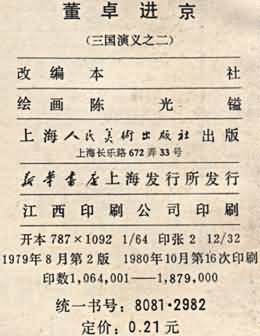 董卓进京
(三国演义之二)
改编 本社
绘画 陈光镒
上海人民美術出版社 出版
上海长乐路 672 弄 33 号
新华書店上海发行所发行
江西印刷公司印刷
开本 787×1092 1/64 印张 2 12/32
1979年 8 月第 2 版 1980年10月第16次印刷
印数 1,064,001——1,879,000
统一书号: 8081·2982
定价: 0.21 元